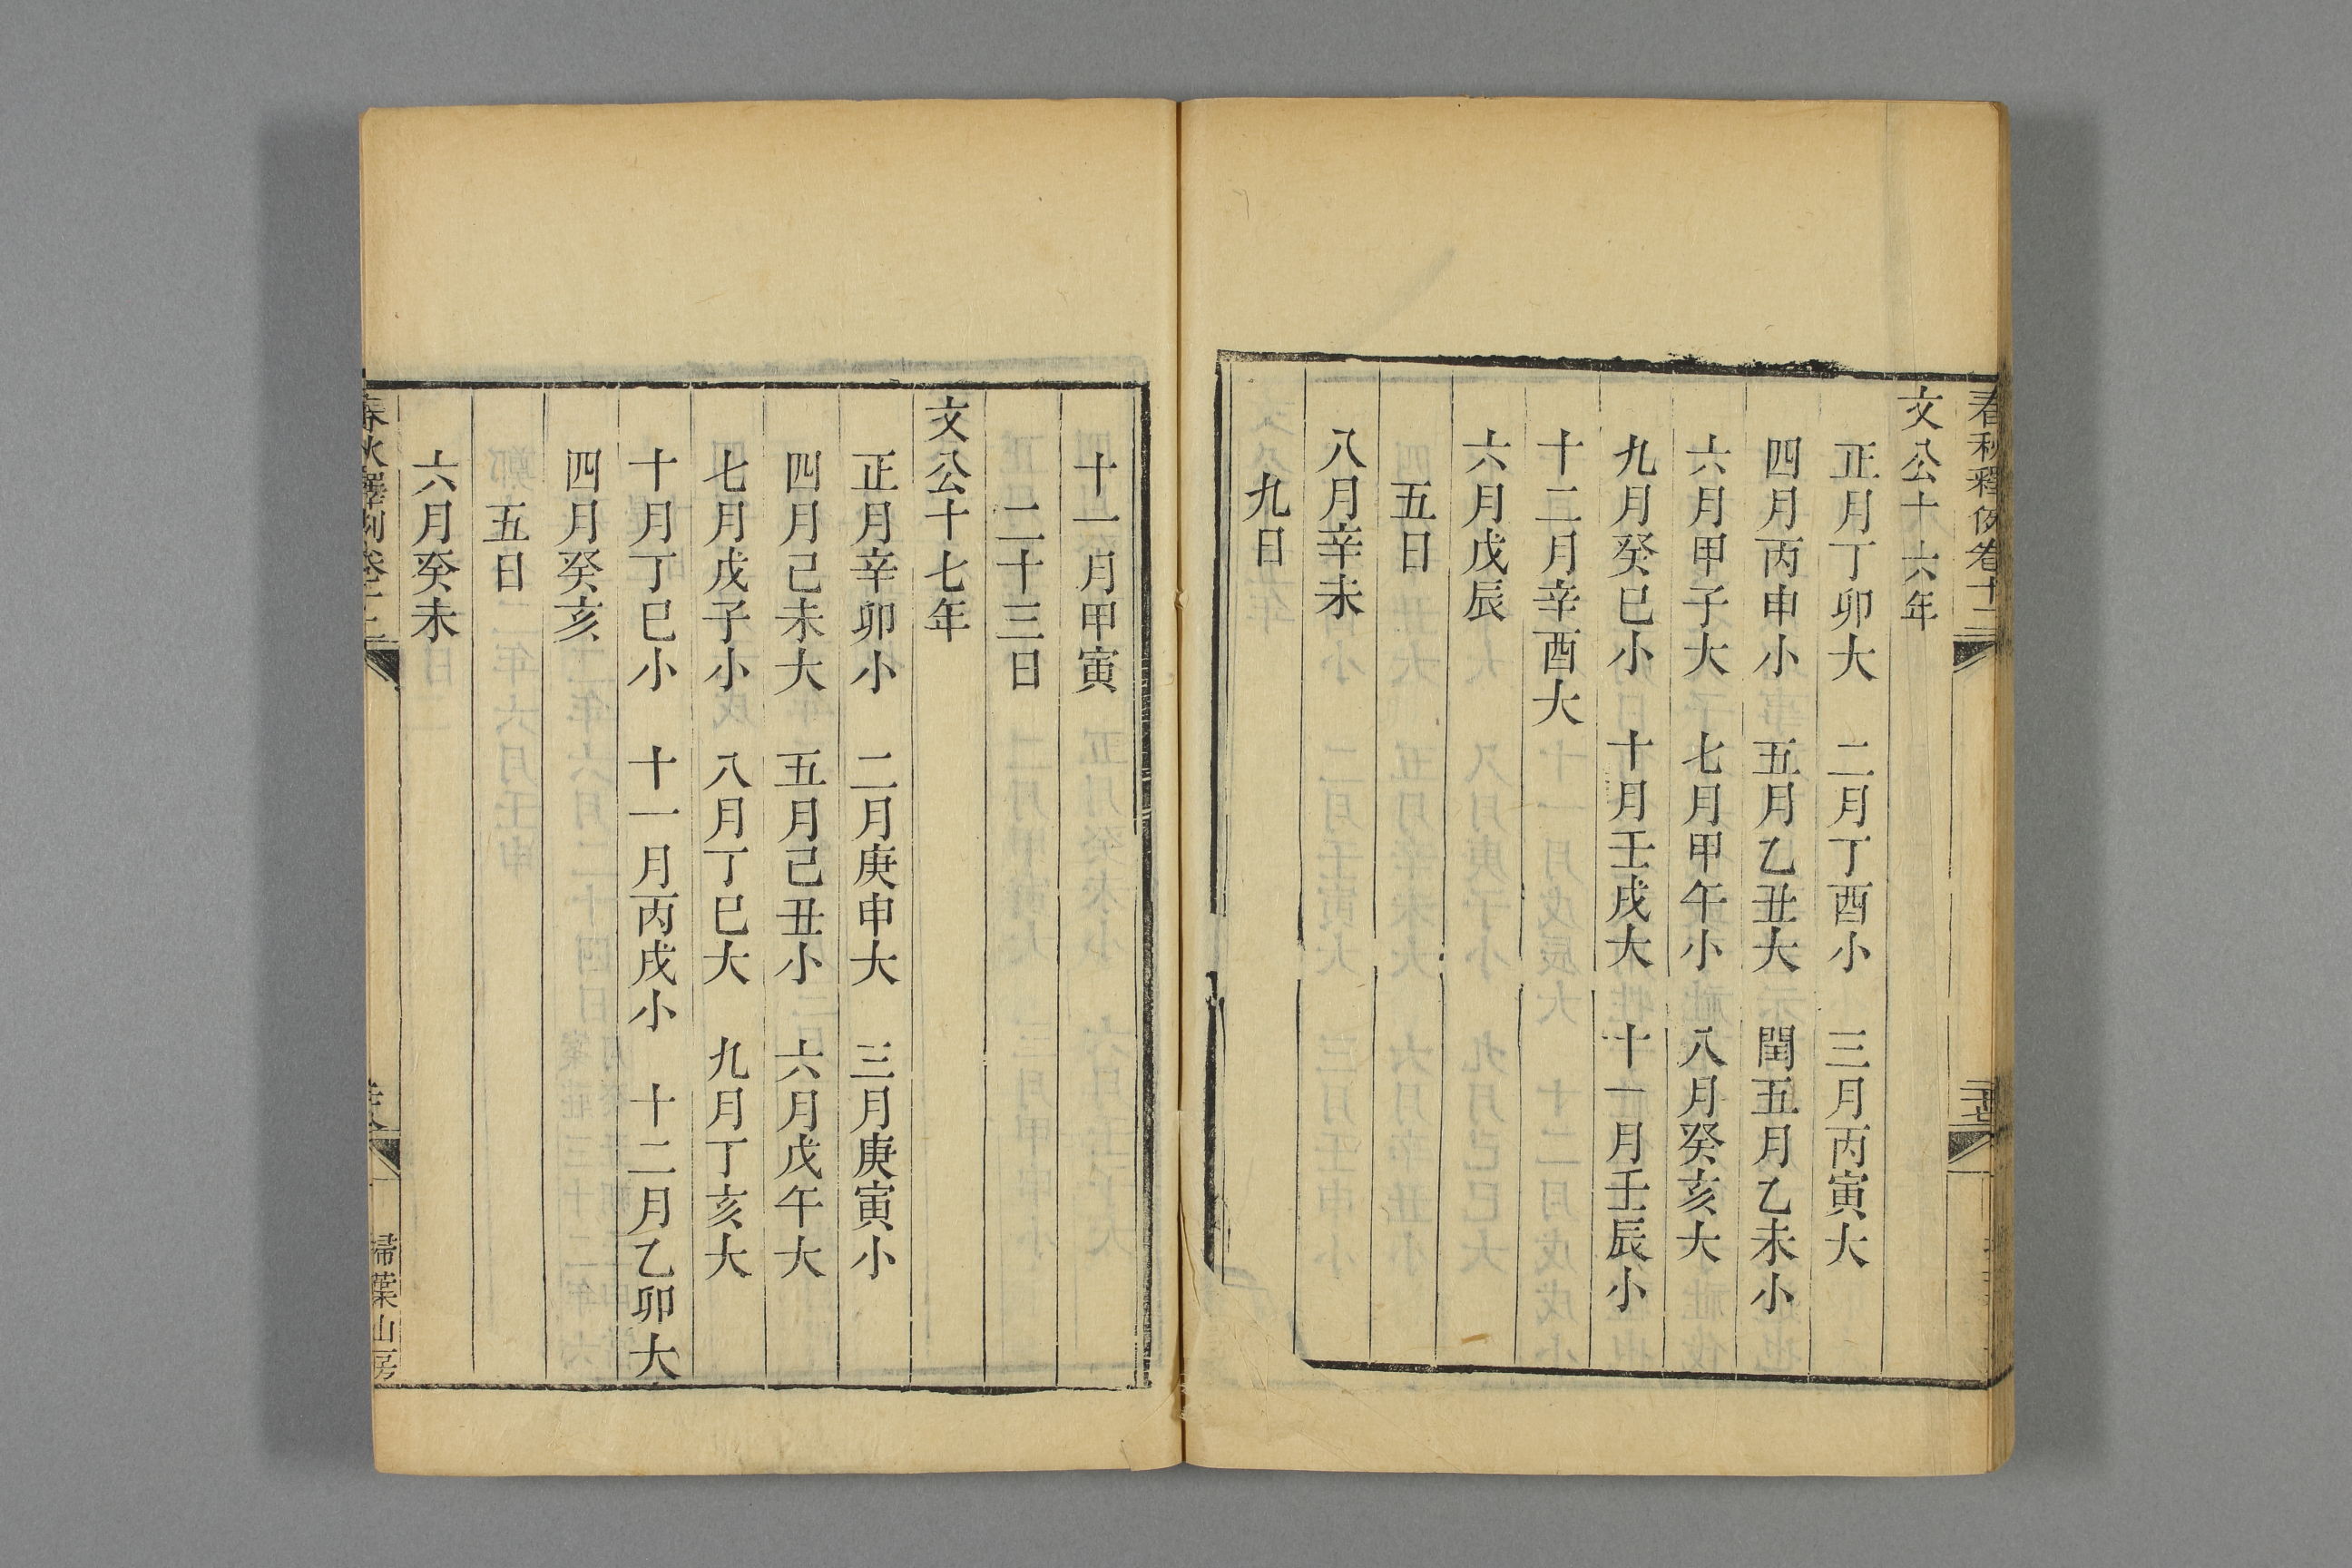 春秋釋例卷十二
文公十六年
正月丁卯大 二月丁酉小 三月丙寅大
四月丙申小 五月乙丑大 閏五月乙未小
六月甲子大 七月甲午小 八月癸亥大
九月癸巳小 十月壬戌大 十一月壬辰小
十二月辛酉大
六月戊辰
五日
八月辛未
九日
十一月甲寅
二十三日
文公十七年
正月辛卯小 二月庚申大 三月庚寅小
四月己未大 五月己丑小 六月戊午大
七月戊子小 八月丁巳大 九月丁亥大
十月丁巳小 十一月丙戌小 十二月乙卯大
四月癸亥
五日
六月癸未
春秋釋例卷十二
掃葉山房